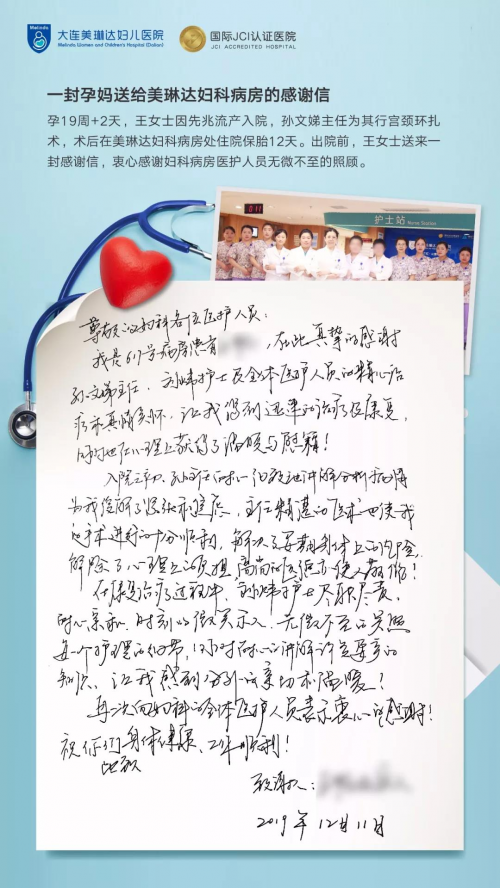 Melinda
大连美琳达妇儿医院
Melinda Women and Children's Hospital (Dalian)
国际JCI认证医院
JCI ACCREDITED HOSPITAL
一封孕妈送给美琳达妇科病房的感谢信
孕19周+2天，王女士因先兆流产入院，孙文娣主任为其行宫颈环扎
术，术后在美琳达妇科病房处住院保胎12天。出院前，王女士送来一
封感谢信，衷心感谢妇科病房医护人员无微不至的照顾。
护士站
Nurse Station
尊敬的妇科各位医护人员：
我是 号病房患者 ，在此真挚的感谢
孙文娣主任、 护士及全体医护人员的精心治
疗和真情关怀，让我得到迅速的治疗及康复，
同时也在心理上获得了温暖与慰籍！
入院之初，孙主任耐心 地讲解分析病情
为我缓解了紧张和焦虑，主任精湛的医术也使我
的手术进行的十分顺利，解决了 身体上的 ，
解除了心理上的负担，高尚的医德 使人敬佩！
在康复治疗过程中， 护士尽职尽责，
耐心亲和，时刻以微笑示人，无微不至的关照
每一个护理的细节，同时耐心的讲解许多重要的
知识，让我感到 的亲切和温暖！
再次向妇科的全体医护人员表示衷心的感谢！
祝你们身体健康、工作顺利！
此致
致谢人：
2019年12月11日